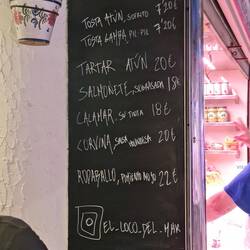 TOSTA ATÚN, SOFRITO 7'20€
TOSTA GAMBA, PIL-PIL 7'20€
TARTAR ATÚN 20€
SALMONETE, SOBRASADA 18€
CALAMAR, SU TINTA 18€
CORVINA, SALSA 20€
RODABALLO, 22€
EL_LOCO_DEL_MAR